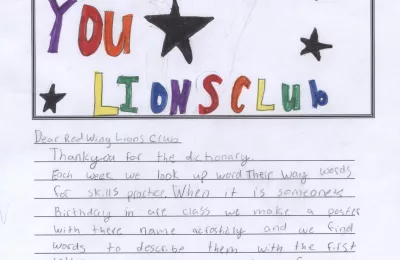 YOU
LIONS CLUb
Dear Red Wing Lions Club
Thankyou for the dictionary.
Each week we look up word Their Way words
for skills practec. When it is someones
Birthday in are class we make a poster
with there name acrostidly and we find
words to describe them with the first